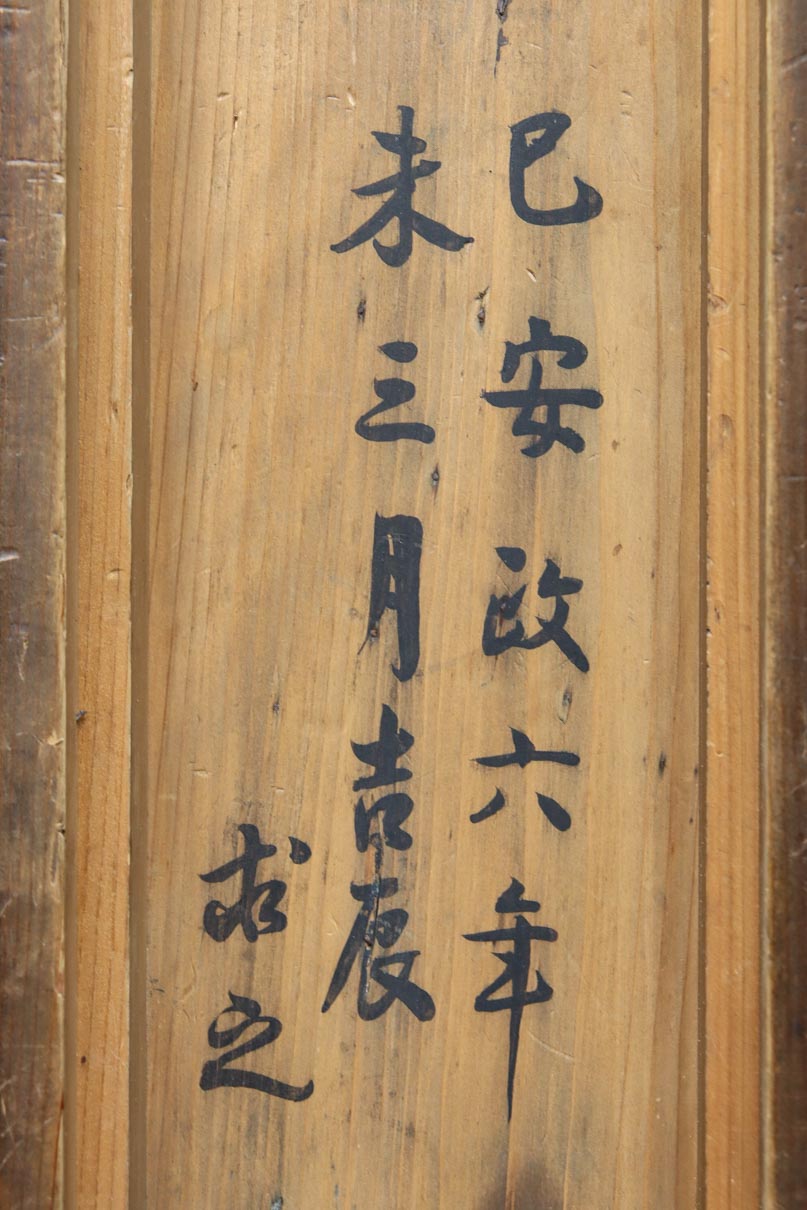 己安政六年
未三月吉辰
求之